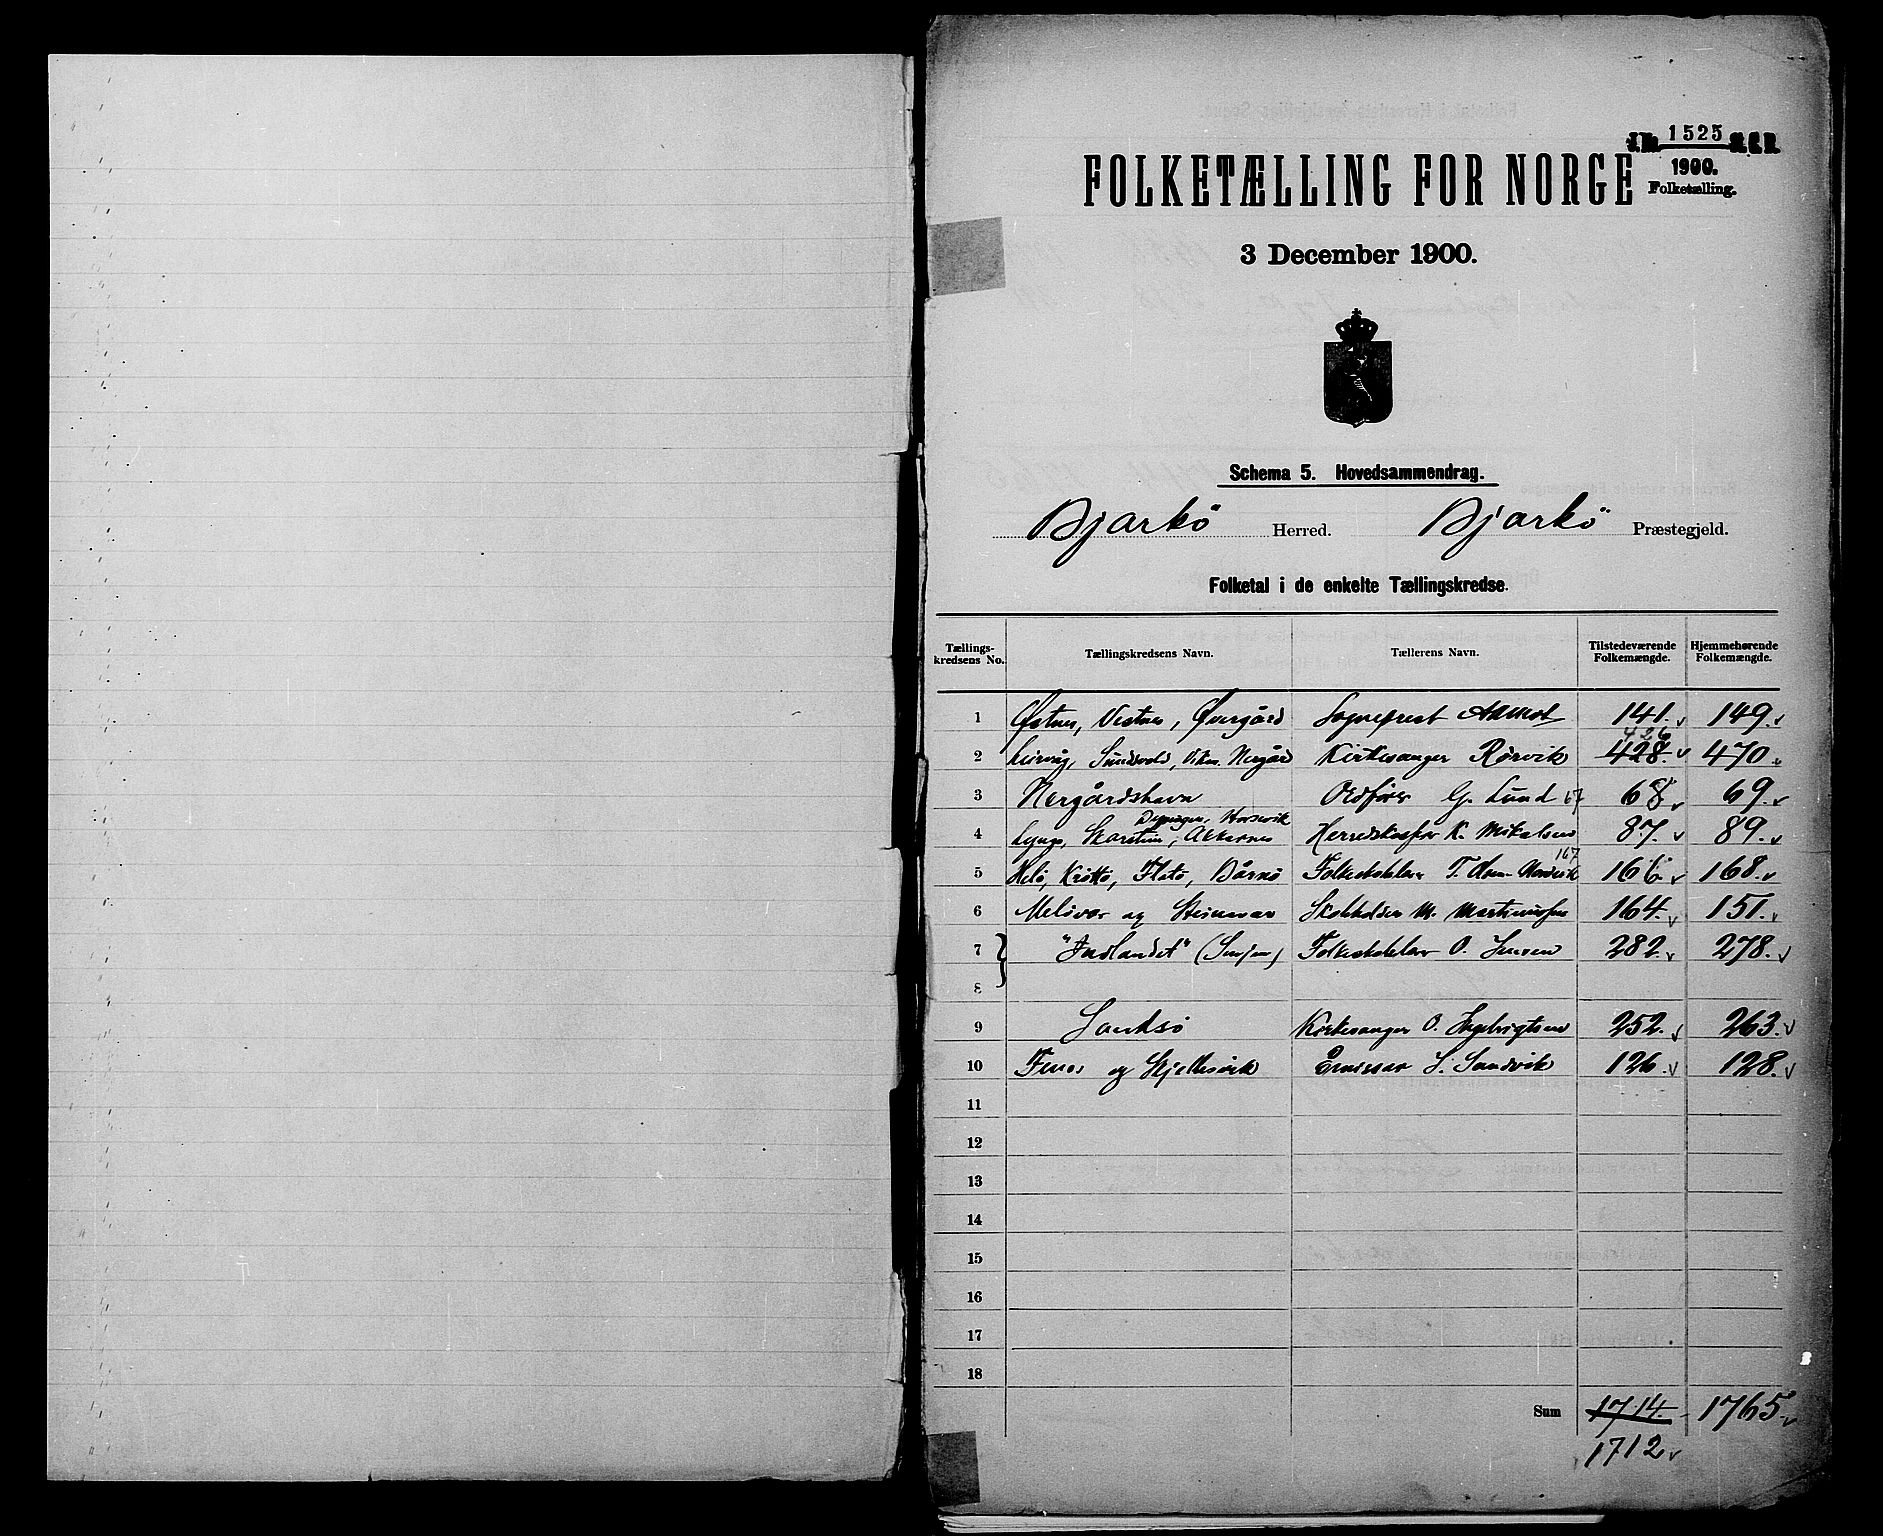 J.No. 1525 St. C. B.
1900.
Folketælling.
FOLKETÆLLING FOR NORGE
3 December 1900.
Schema 5. Hovedsammendrag.
Bjarkö Herred. Bjarkö Præstegjeld.
Folketal i de enkelte Tællingskredse.
Tællings-kredsens No. Tællingskredsens Navn. Tællerens Navn. Tilstedeværende Folkemængde. Hjemmehørende Folkemængde.
1 Østnes, Vestnes, Øvergård Sogneprest 141. 149.
426
2 Leirvåg, Sundsvold, Nergård Kirkesanger Rørvik 428. 470.
3 Nergårdshavn Ordfører G. Lund 67 68 69.
4 Lyngs, Skarstein, Akkarnes Herredskasser K. Mikalsen 87. 89.
167
5 Helö, Kröttö, Flatö, Bårnö Folkeskolelærer T. Olsen Nordvik 166. 168.
6 Melsvær og Steinavær Skoleholder M. Martinussen 164. 151.
7 "Indlandet" (Senjen) Folkeskolelærer O. Jensen 282. 278.
8
9 Sandsö Kirkesanger O. Ingebrigtsen 252. 263.
10 Fenes og Skjellesvik Emissær S. Sandvik 126. 128.
11
12
13
14
15
16
17
18
Sum 1714. 1765.
1712